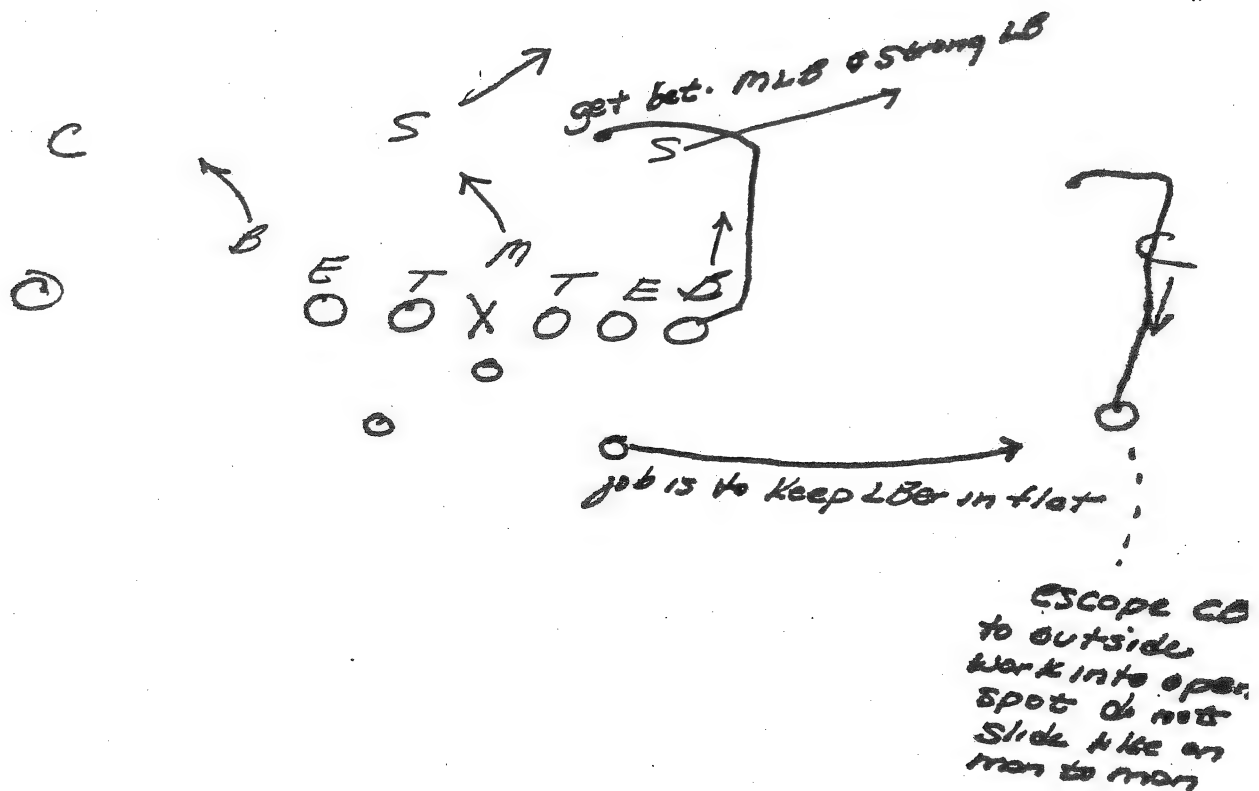 get bet. MLB & Strong LB
C
S
S
C
B
M
E
T
X
T
E
B
job is to keep LBer in flat
escape CB
to outside
work into open
spot do not
slide like on
man to man